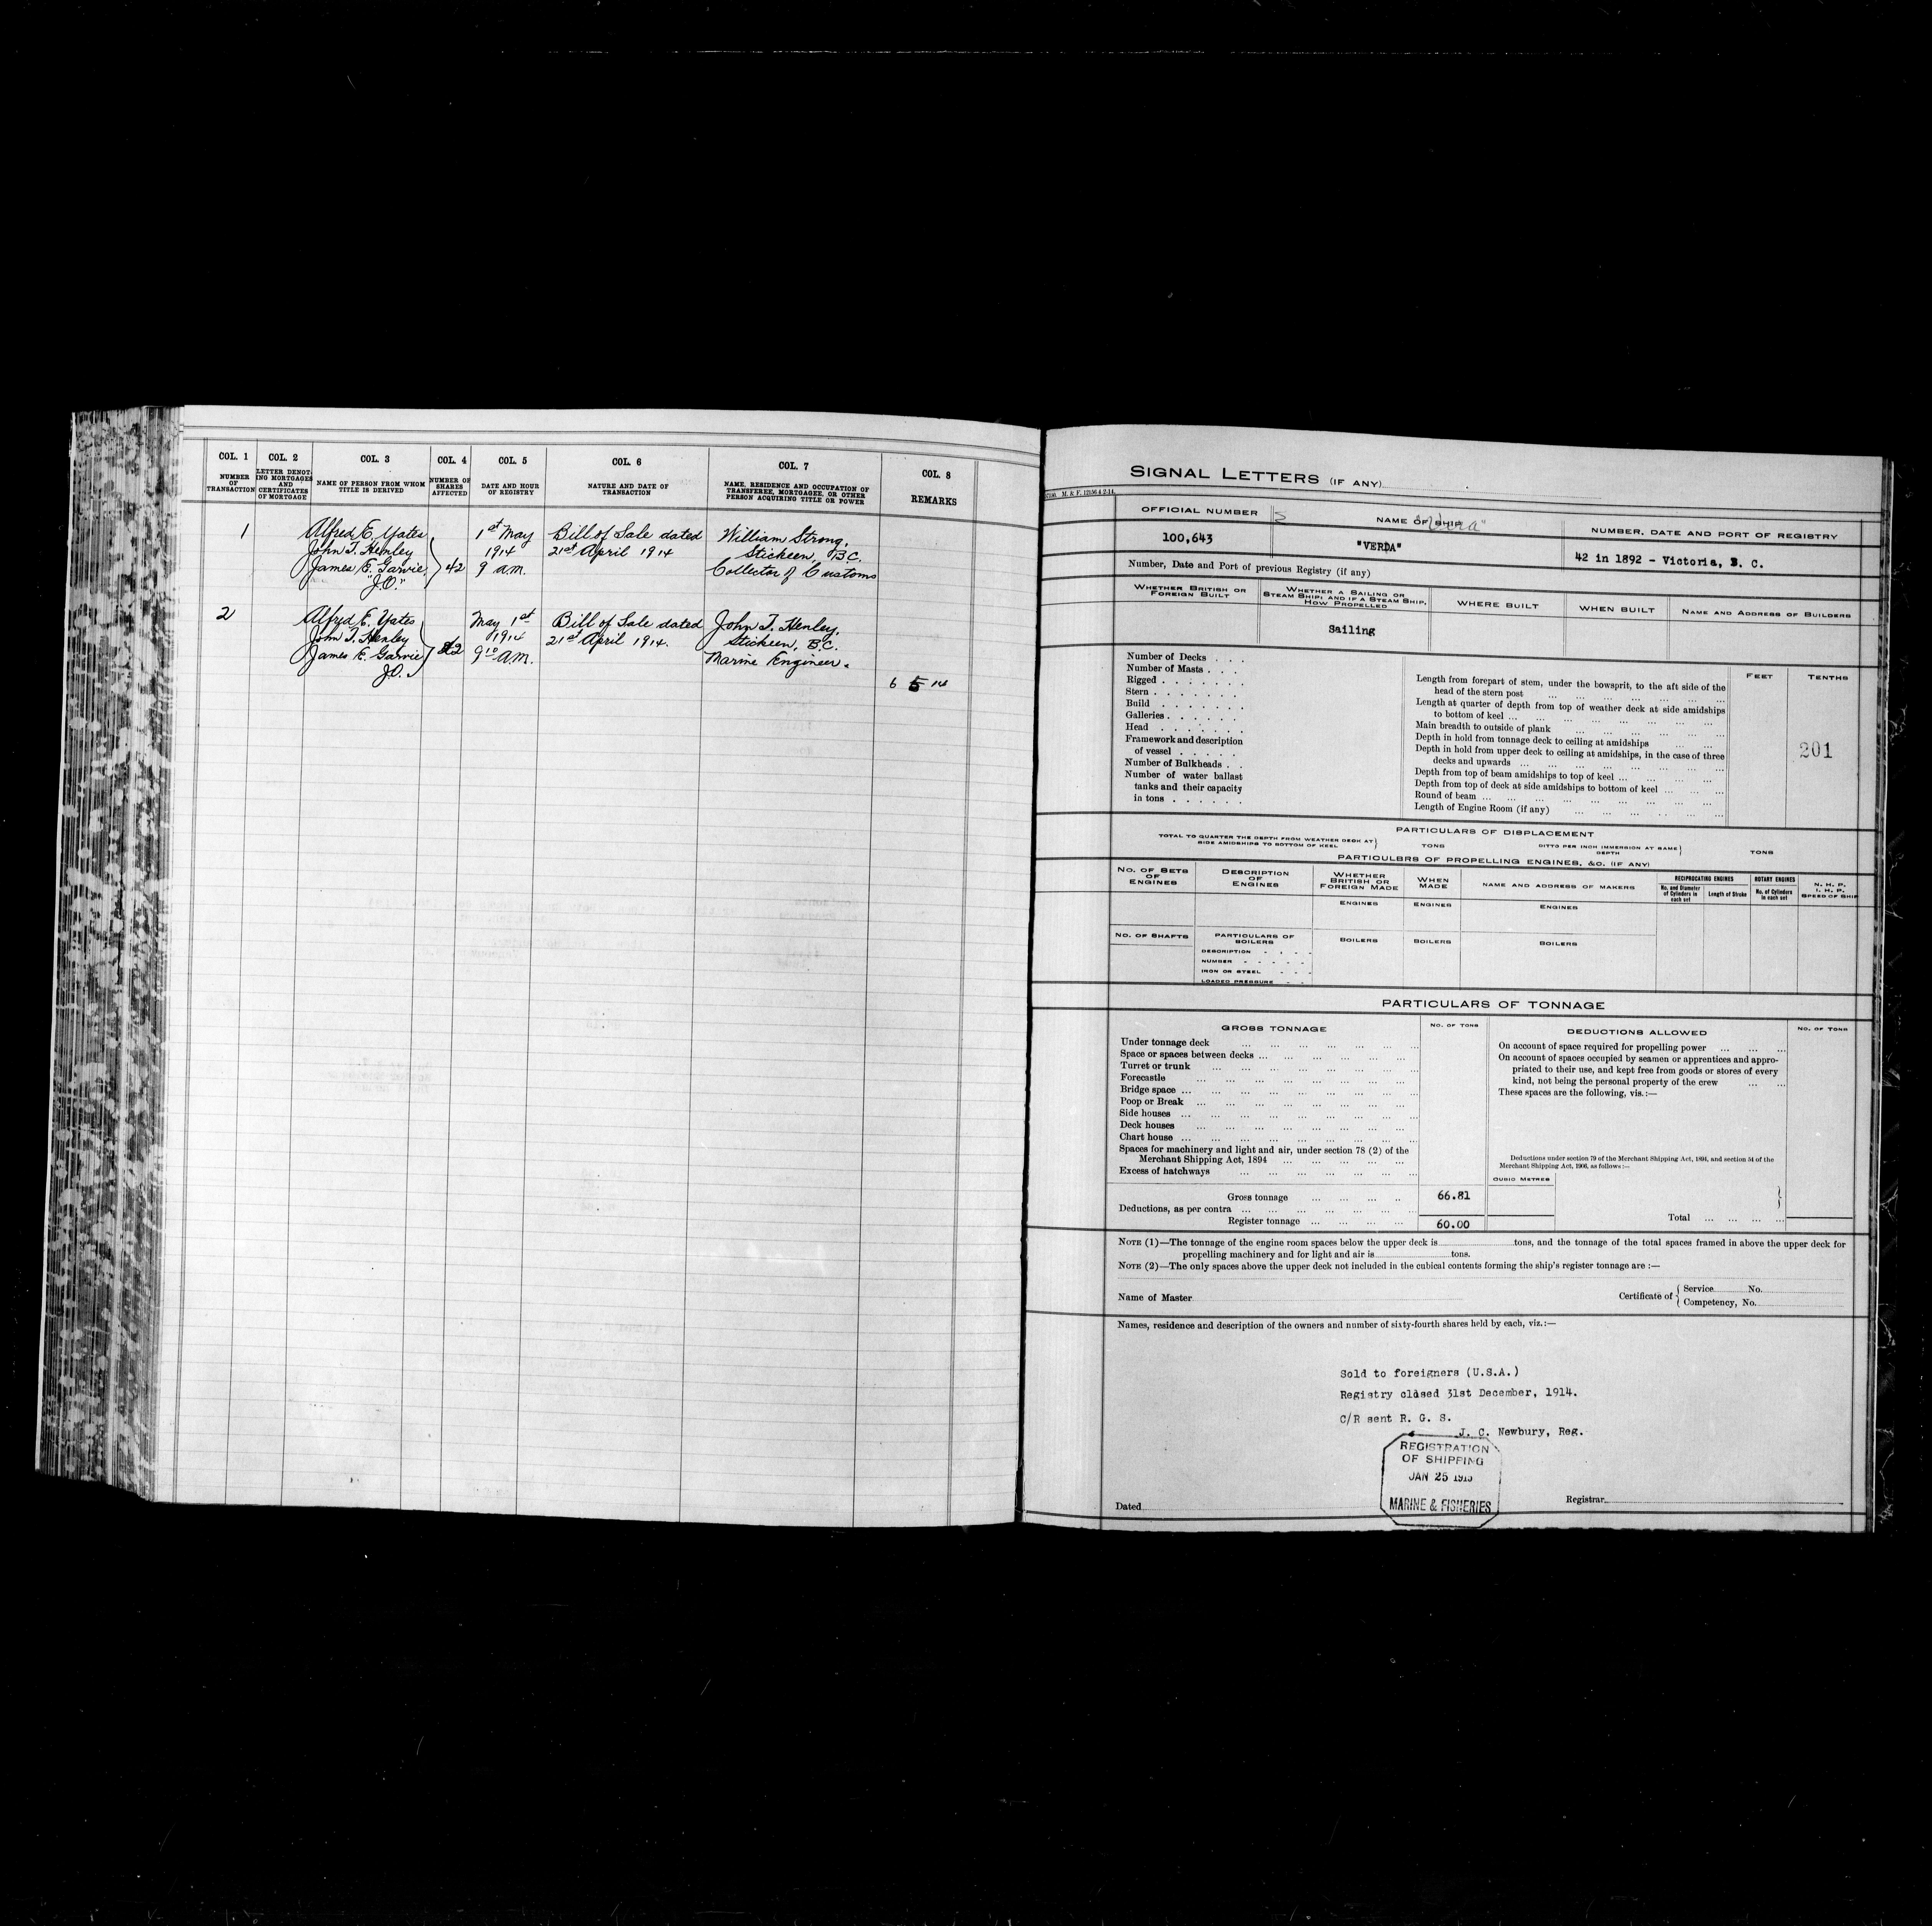 COL. 1
NUMBER
OF
TRANSACTION
COL. 2
LETTER DENOT-
ING MORTGAGES
AND
CERTIFICATES
OF MORTGAGE
COL. 3
NAME OF PERSON FROM WHOM
TITLE IS DERIVED
COL. 4
NUMBER OF
SHARES
AFFECTED
COL. 5
DATE AND HOUR
OF REGISTRY
COL. 6
NATURE AND DATE OF
TRANSACTION
COL. 7
NAME, RESIDENCE AND OCCUPATION OF
TRANSFEREE, MORTGAGEE, OR OTHER
PERSON ACQUIRING TITLE OR POWER
COL. 8
REMARKS
1
Alfred E. Yates
John T. Henley
James E. Garvie
"J.O."
42
1st May
1914
9 a.m.
Bill of Sale dated
21st April 1914
William Strong,
Stickeen, B.C.
Collector of Customs
2
Alfred E. Yates
John T. Henley
James E. Garvie
J.O.
May 1st
1914
9 10 A.M.
Bill of Sale dated
21st April 1914.
John T. Henley,
Stickeen, B.C.
Marine Engineer.
6 5 14
SIGNAL LETTERS (IF ANY)
M. & F. 12556 4-2-14.
OFFICIAL NUMBER
100,643
NAME OF SHIP
"Vera"
"VERDA"
NUMBER, DATE AND PORT OF REGISTRY
42 in 1892 - Victoria, B. C.
Number, Date and Port of previous Registry (if any)
WHETHER BRITISH OR
FOREIGN BUILT
WHETHER A SAILING OR
STEAM SHIP; AND IF A STEAM SHIP,
HOW PROPELLED
WHERE BUILT
WHEN BUILT
NAME AND ADDRESS OF BUILDERS
Sailing
Number of Decks . . .
Number of Masts . . .
Rigged . . . . . . .
Stern . . . . . . . .
Build . . . . . . .
Galleries . . . . . .
Head . . . . . . .
Framework and description
of vessel . . . . .
Number of Bulkheads . .
Number of water ballast
tanks and their capacity
in tons . . . . . .
FEET
TENTHS
Length from forepart of stem, under the bowsprit, to the aft side of the
head of the stern post ... ... ...
Length at quarter of depth from top of weather deck at side amidships
to bottom of keel ... ... ...
Main breadth to outside of plank ... ... ...
Depth in hold from tonnage deck to ceiling at amidships ... ...
Depth in hold from upper deck to ceiling at amidships, in the case of three
decks and upwards ... ... ...
Depth from top of beam amidships to top of keel ... ... ...
Depth from top of deck at side amidships to bottom of keel ... ...
Round of beam ... ... ...
Length of Engine Room (if any) ... ... ...
201
PARTICULARS OF DISPLACEMENT
TOTAL TO QUARTER THE DEPTH FROM WEATHER DECK AT
SIDE AMIDSHIPS TO BOTTOM OF KEEL
TONS
DITTO PER INCH IMMERSION AT SAME
DEPTH
TONS
PARTICULBRS OF PROPELLING ENGINES, &C. (IF ANY)
NO. OF SETS
OF
ENGINES
DESCRIPTION
OF
ENGINES
WHETHER
BRITISH OR
FOREIGN MADE
WHEN
MADE
NAME AND ADDRESS OF MAKERS
RECIPROCATING ENGINES
No. and Diameter
of Cylinders in
each set
Length of Stroke
ROTARY ENGINES
No. of Cylinders
in each set
N. H. P.
I. H. P.
SPEED OF SHIP
ENGINES
ENGINES
ENGINES
NO. OF SHAFTS
PARTICULARS OF
BOILERS
BOILERS
BOILERS
BOILERS
DESCRIPTION - - - -
NUMBER - - - - -
IRON OR STEEL - - -
LOADED PRESSURE - -
PARTICULARS OF TONNAGE
GROSS TONNAGE
NO. OF TONS
Under tonnage deck ... ... ...
Space or spaces between decks ... ... ...
Turret or trunk ... ... ...
Forecastle ... ... ...
Bridge space ... ... ...
Poop or Break ... ... ...
Side houses ... ... ...
Deck houses ... ... ...
Chart house ... ... ...
Spaces for machinery and light and air, under section 78 (2) of the
Merchant Shipping Act, 1894 ... ... ...
Excess of hatchways ... ... ...
Gross tonnage ... ... ... ..
66.81
Deductions, as per contra ... ... ...
Register tonnage ... ... ... ...
60.00
DEDUCTIONS ALLOWED
NO. OF TONS
On account of space required for propelling power ... ... ...
On account of spaces occupied by seamen or apprentices and appro-
priated to their use, and kept free from goods or stores of every
kind, not being the personal property of the crew ... ...
These spaces are the following, vis.:—
Deductions under section 79 of the Merchant Shipping Act, 1894, and section 54 of the
Merchant Shipping Act, 1906, as follows:—
CUBIC METRES
Total ... ... ... ...
NOTE (1)—The tonnage of the engine room spaces below the upper deck is tons, and the tonnage of the total spaces framed in above the upper deck for
propelling machinery and for light and air is tons.
NOTE (2)—The only spaces above the upper deck not included in the cubical contents forming the ship's register tonnage are :—
Name of Master
Certificate of
Service No.
Competency, No.
Names, residence and description of the owners and number of sixty-fourth shares held by each, viz.:—
Sold to foreigners (U.S.A.)
Registry clàsed 31st December, 1914.
C/R sent R. G. S.
J. C. Newbury, Reg.
REGISTRATION
OF SHIPPING
JAN 25 1915
MARINE & FISHERIES
Dated
Registrar